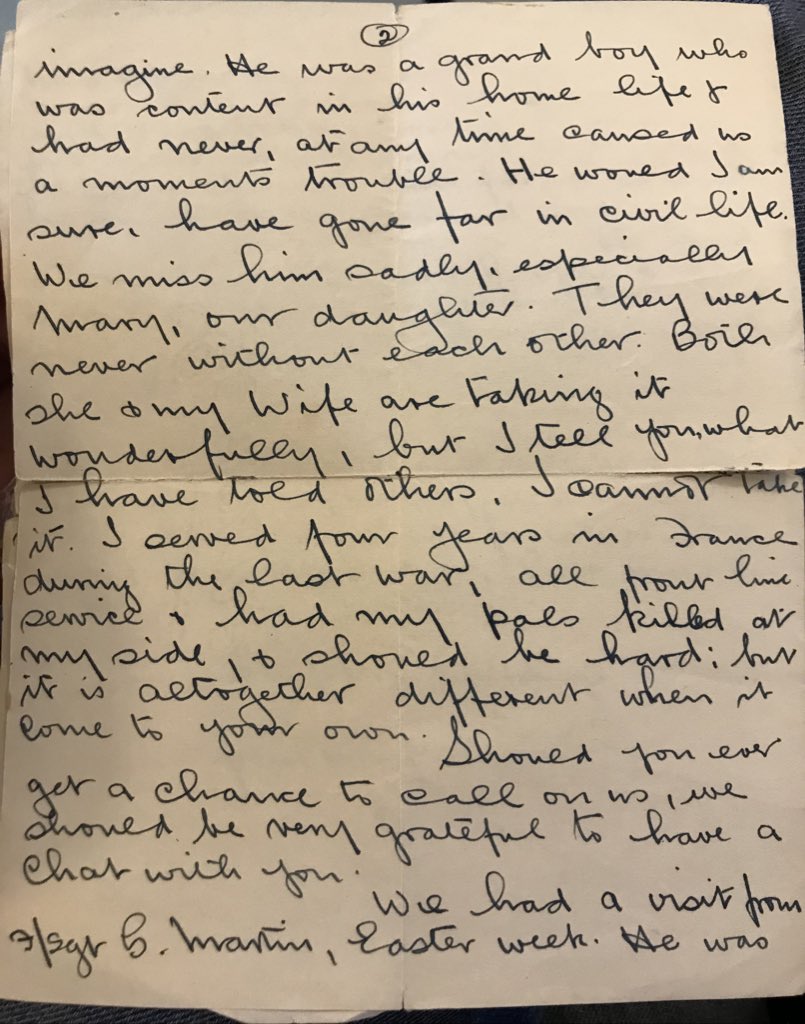 2
imagine. He was a grand boy who
was content in his home life &
had never, at any time caused us
a moments trouble. He would I am
sure, have gone far in civil life.
We miss him sadly, especially
Mary, our daughter. They were
never without each other. Both
she & my Wife are taking it
wonderfully, but I tell you, what
I have told others, I cannot take
it. I served four years in France
during the last war, all front line
service & had my pals killed at
my side, & should be hard; but
it is altogether different when it
come to your own.
Should you ever
get a chance to call on us, we
should be very grateful to have a
Chat with you.
We had a visit from
F/Sgt G. Martin, Easter week. He was